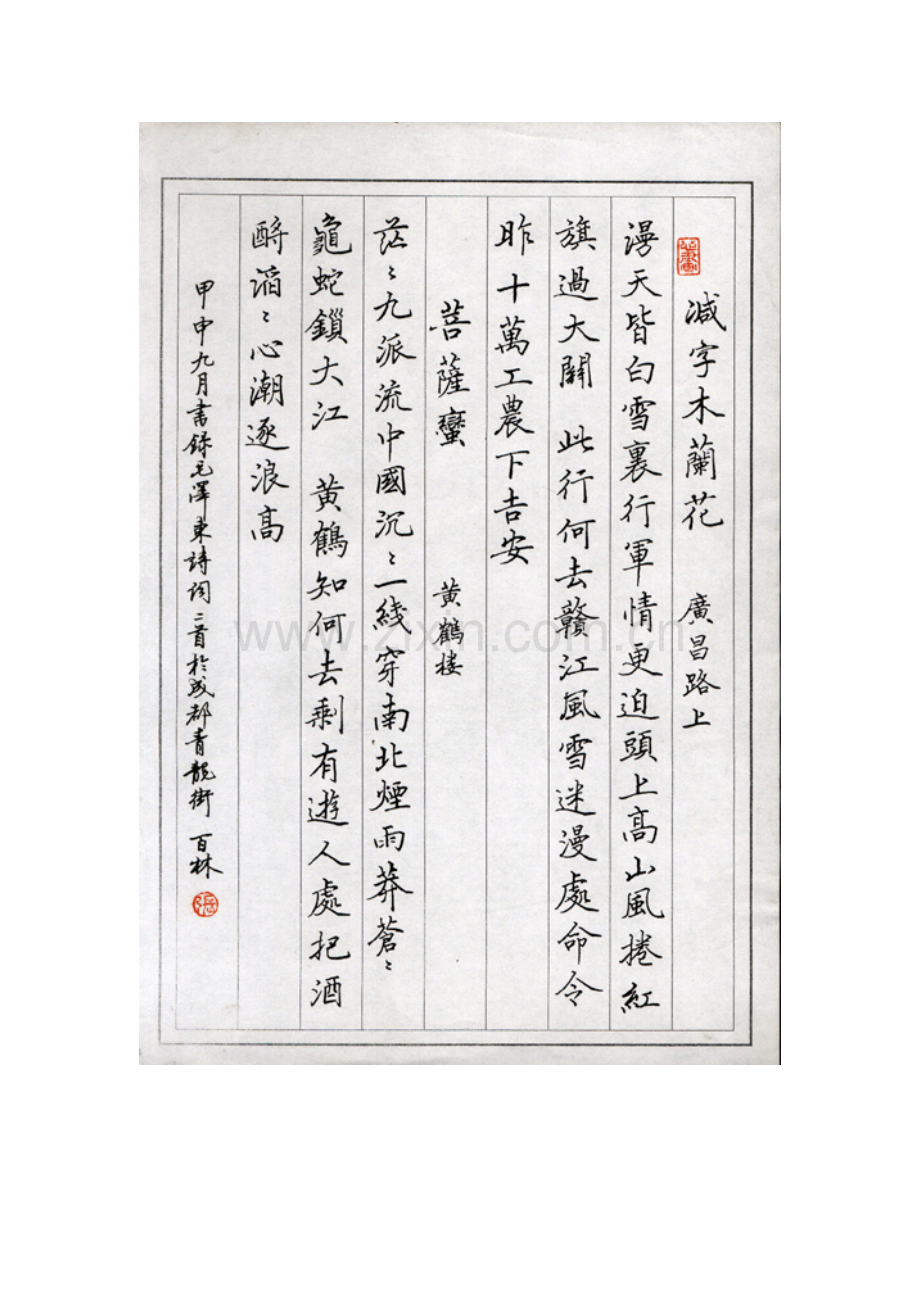 減字木蘭花 廣昌路上
漫天皆白雪裏行軍情更迫頭上高山風捲紅
旗過大關 此行何去贛江風雪迷漫處命令
昨十萬工農下吉安
菩薩蠻 黄鶴楼
茫〻九派流中國沉〻一綫穿南北煙雨莽蒼〻
龜蛇鎖大江 黄鶴知何去剩有遊人處把酒
酹滔〻心潮逐浪高
甲申九月書録毛澤東詩词二首於成都青龍街 百林
www.zixin.com.cn